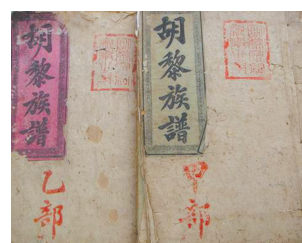 胡黎族譜
甲部
胡黎族譜
乙部